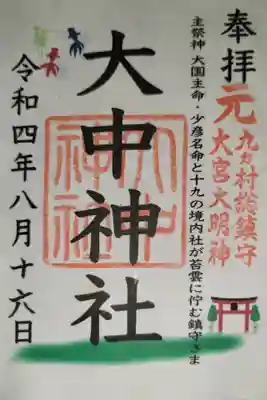 奉拝
元
九ヶ村総鎮守
大宮大明神
主祭神 大国主命・少彦名命と十九の境内社が苔雲に佇む鎮守さま
大中神社
令和四年八月十六日